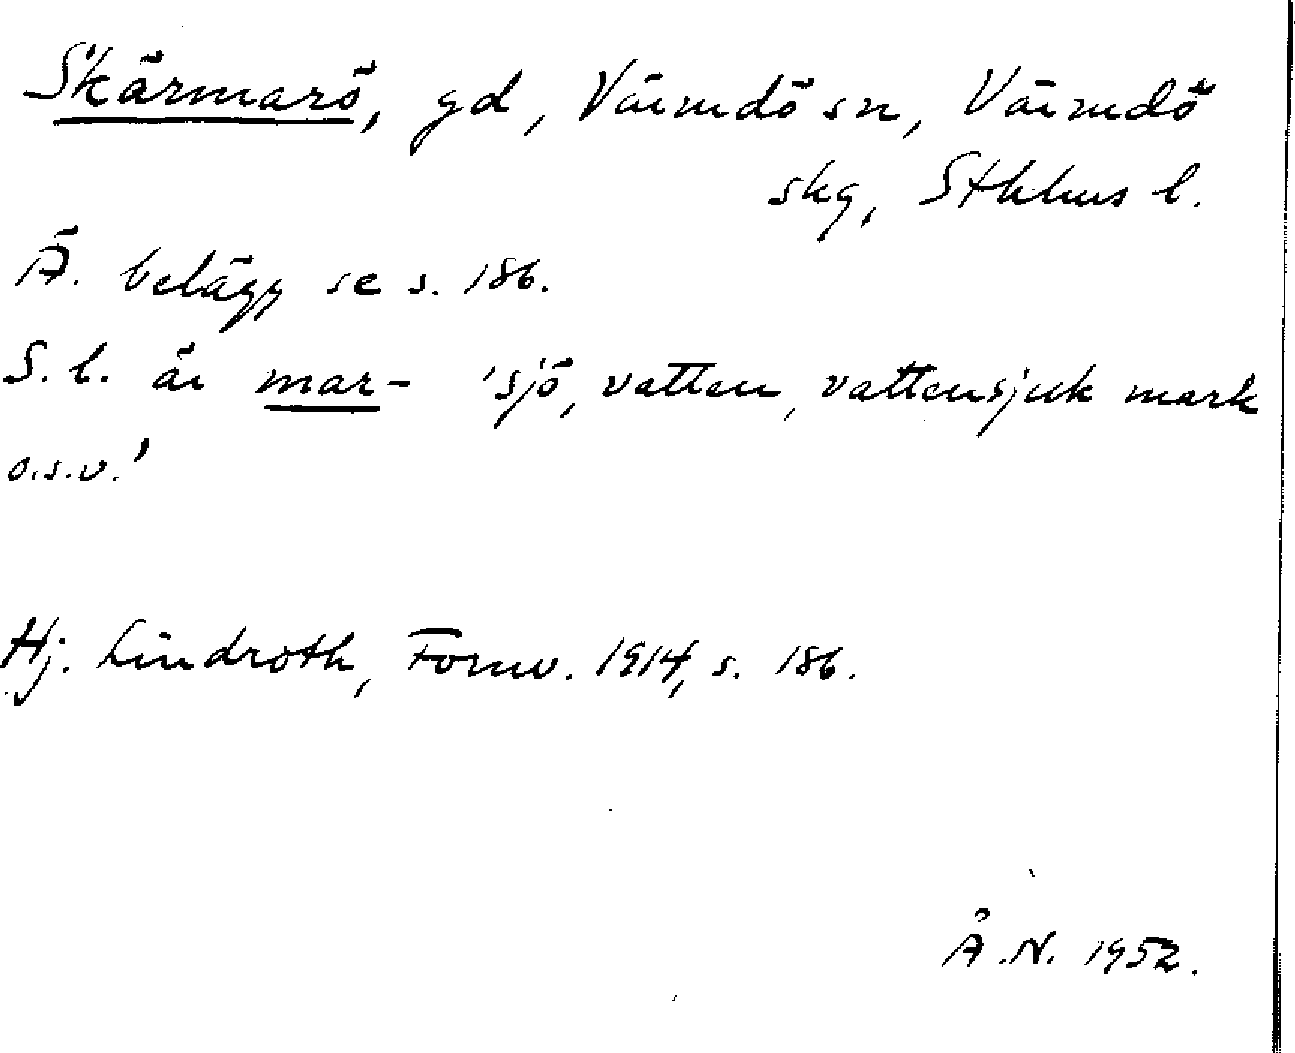 Skärmarö, gd, Värmdö sn, Värmdö
skg, Sthlms l.
Ä. belägg se s. 186.
S. l. är mar- 'sjö, vatten, vattensjuk mark
o.s.v.'
Hj. Lindroth, Fornv. 1914, s. 186.
Å.N. 1952.